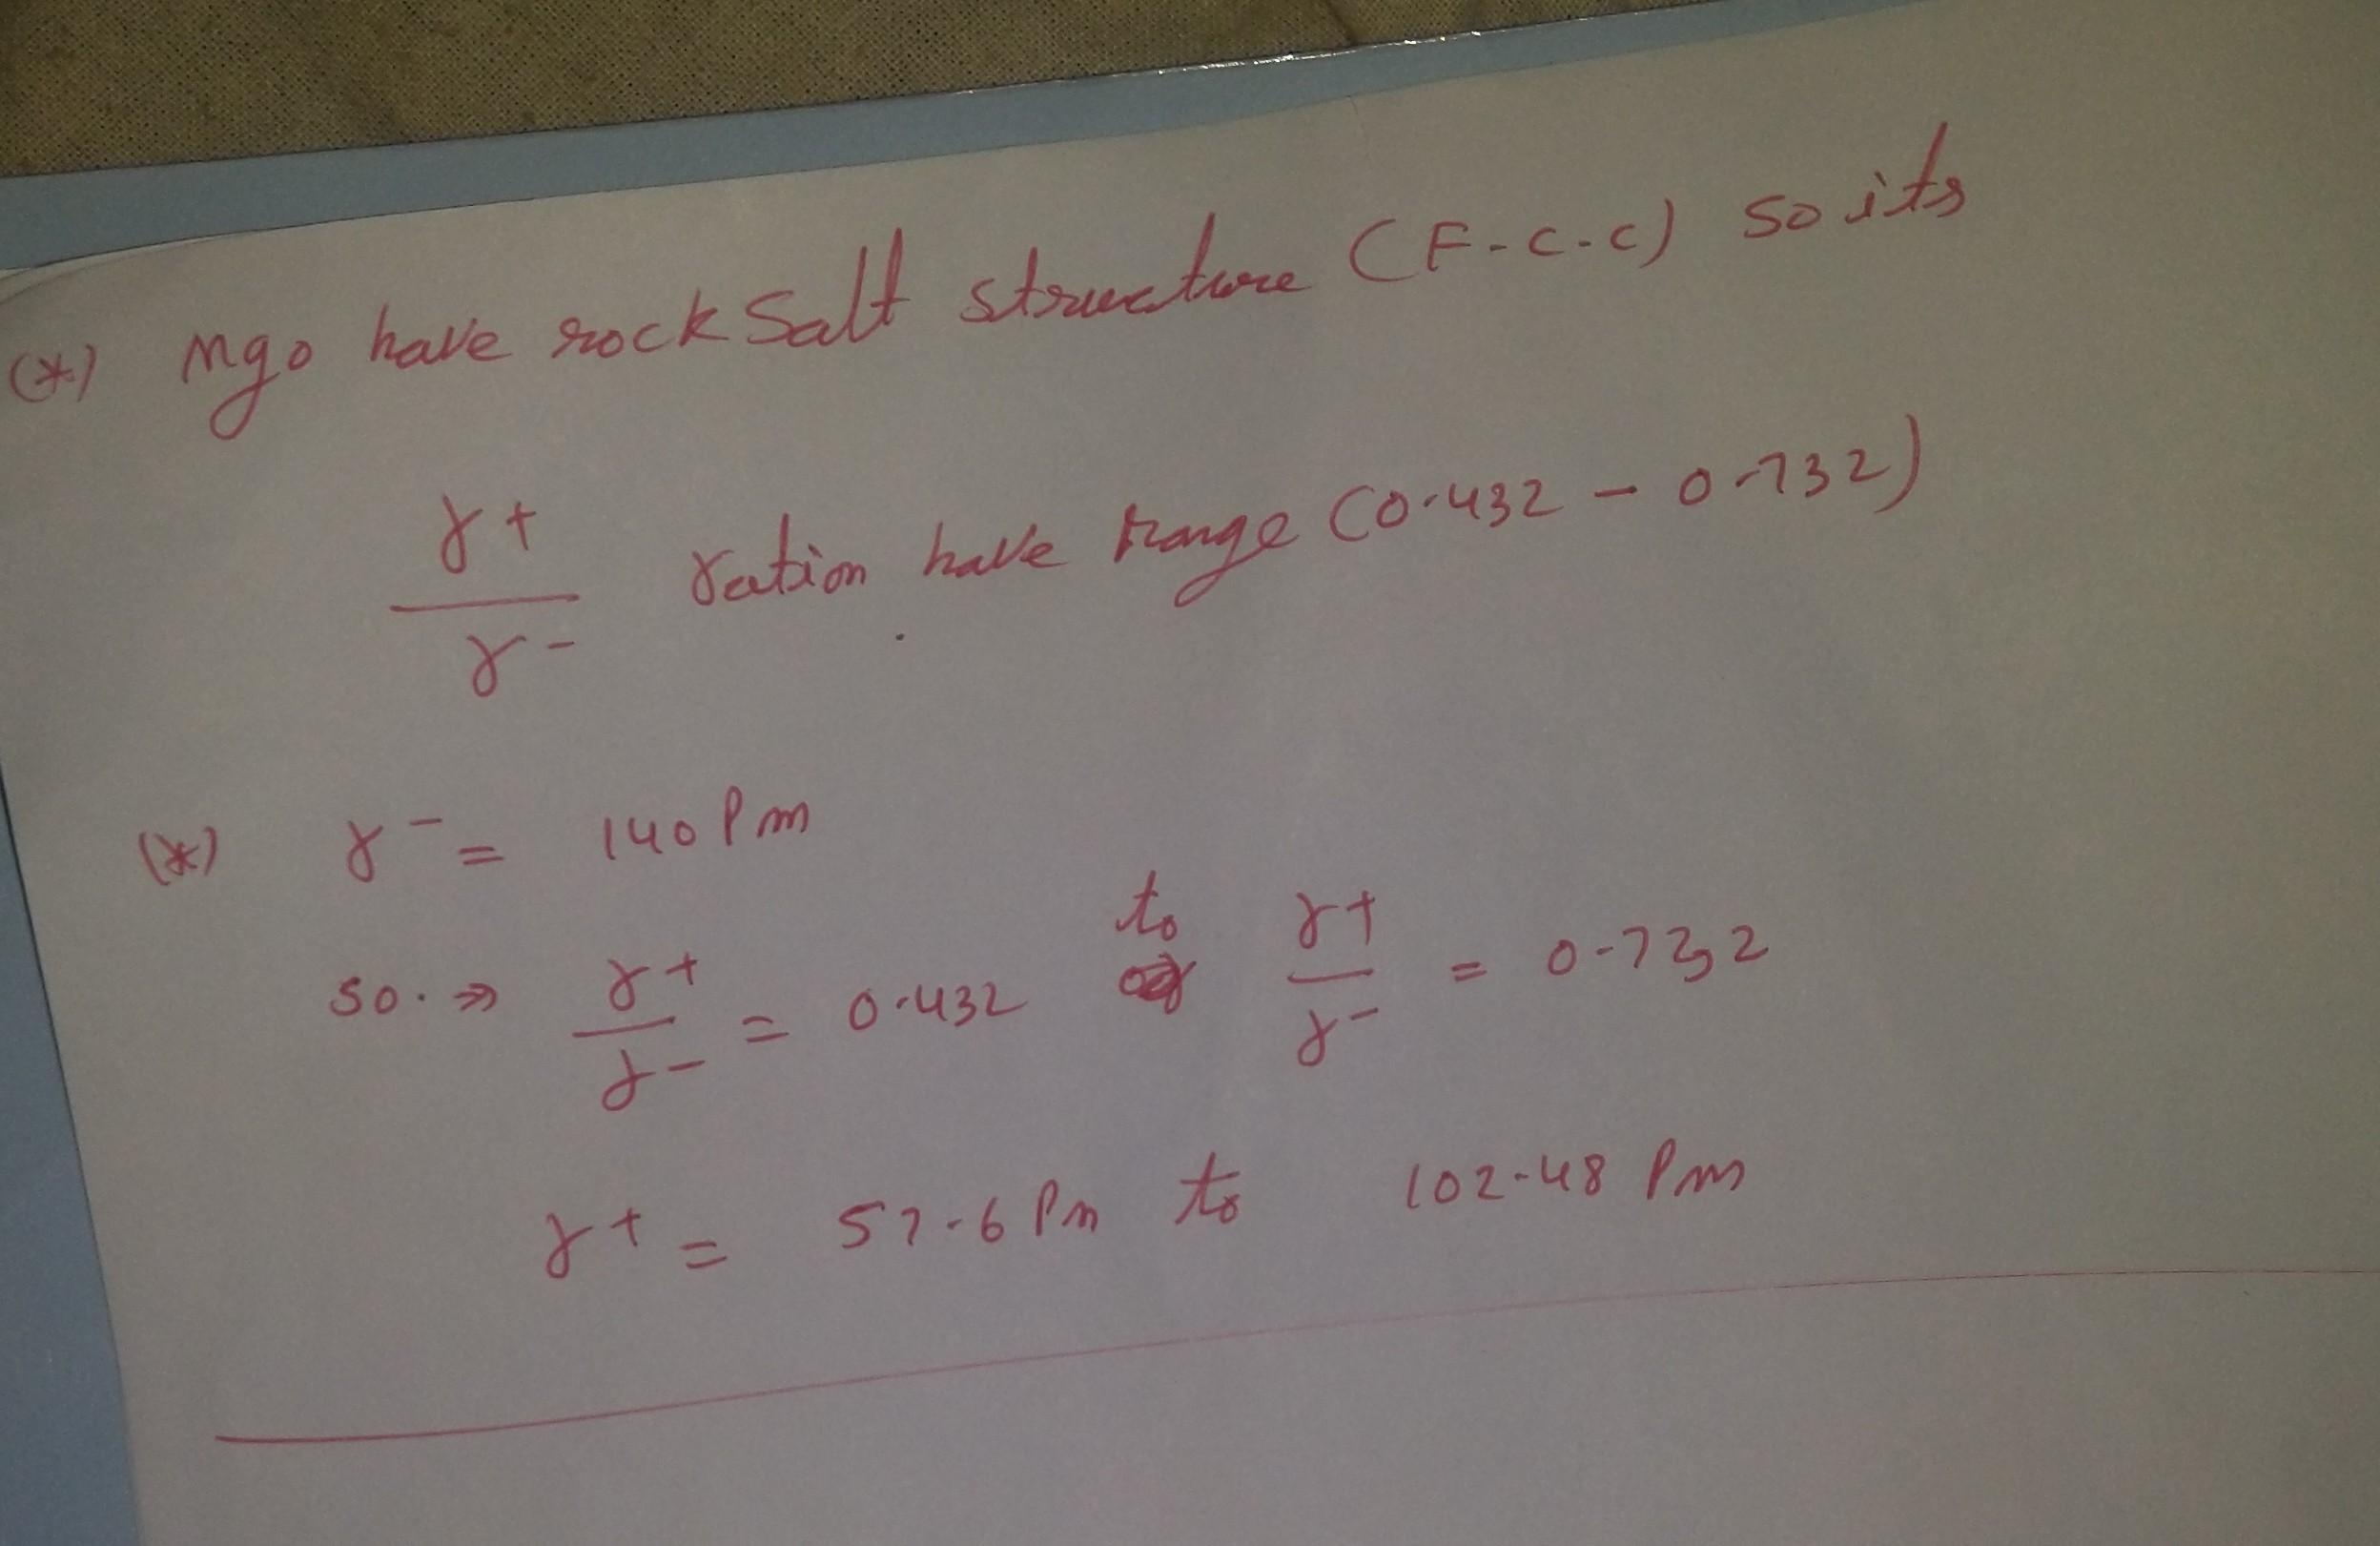 (*) Mgo have rock salt structure (F.C.C) so its
γ+ / γ- ration have range (0.432 - 0.732)
(*) γ- = 140 Pm
so. ⇒ γ+ / γ- = 0.432 to γ+ / γ- = 0.732
γ+ = 57.6 Pm to 102.48 Pm